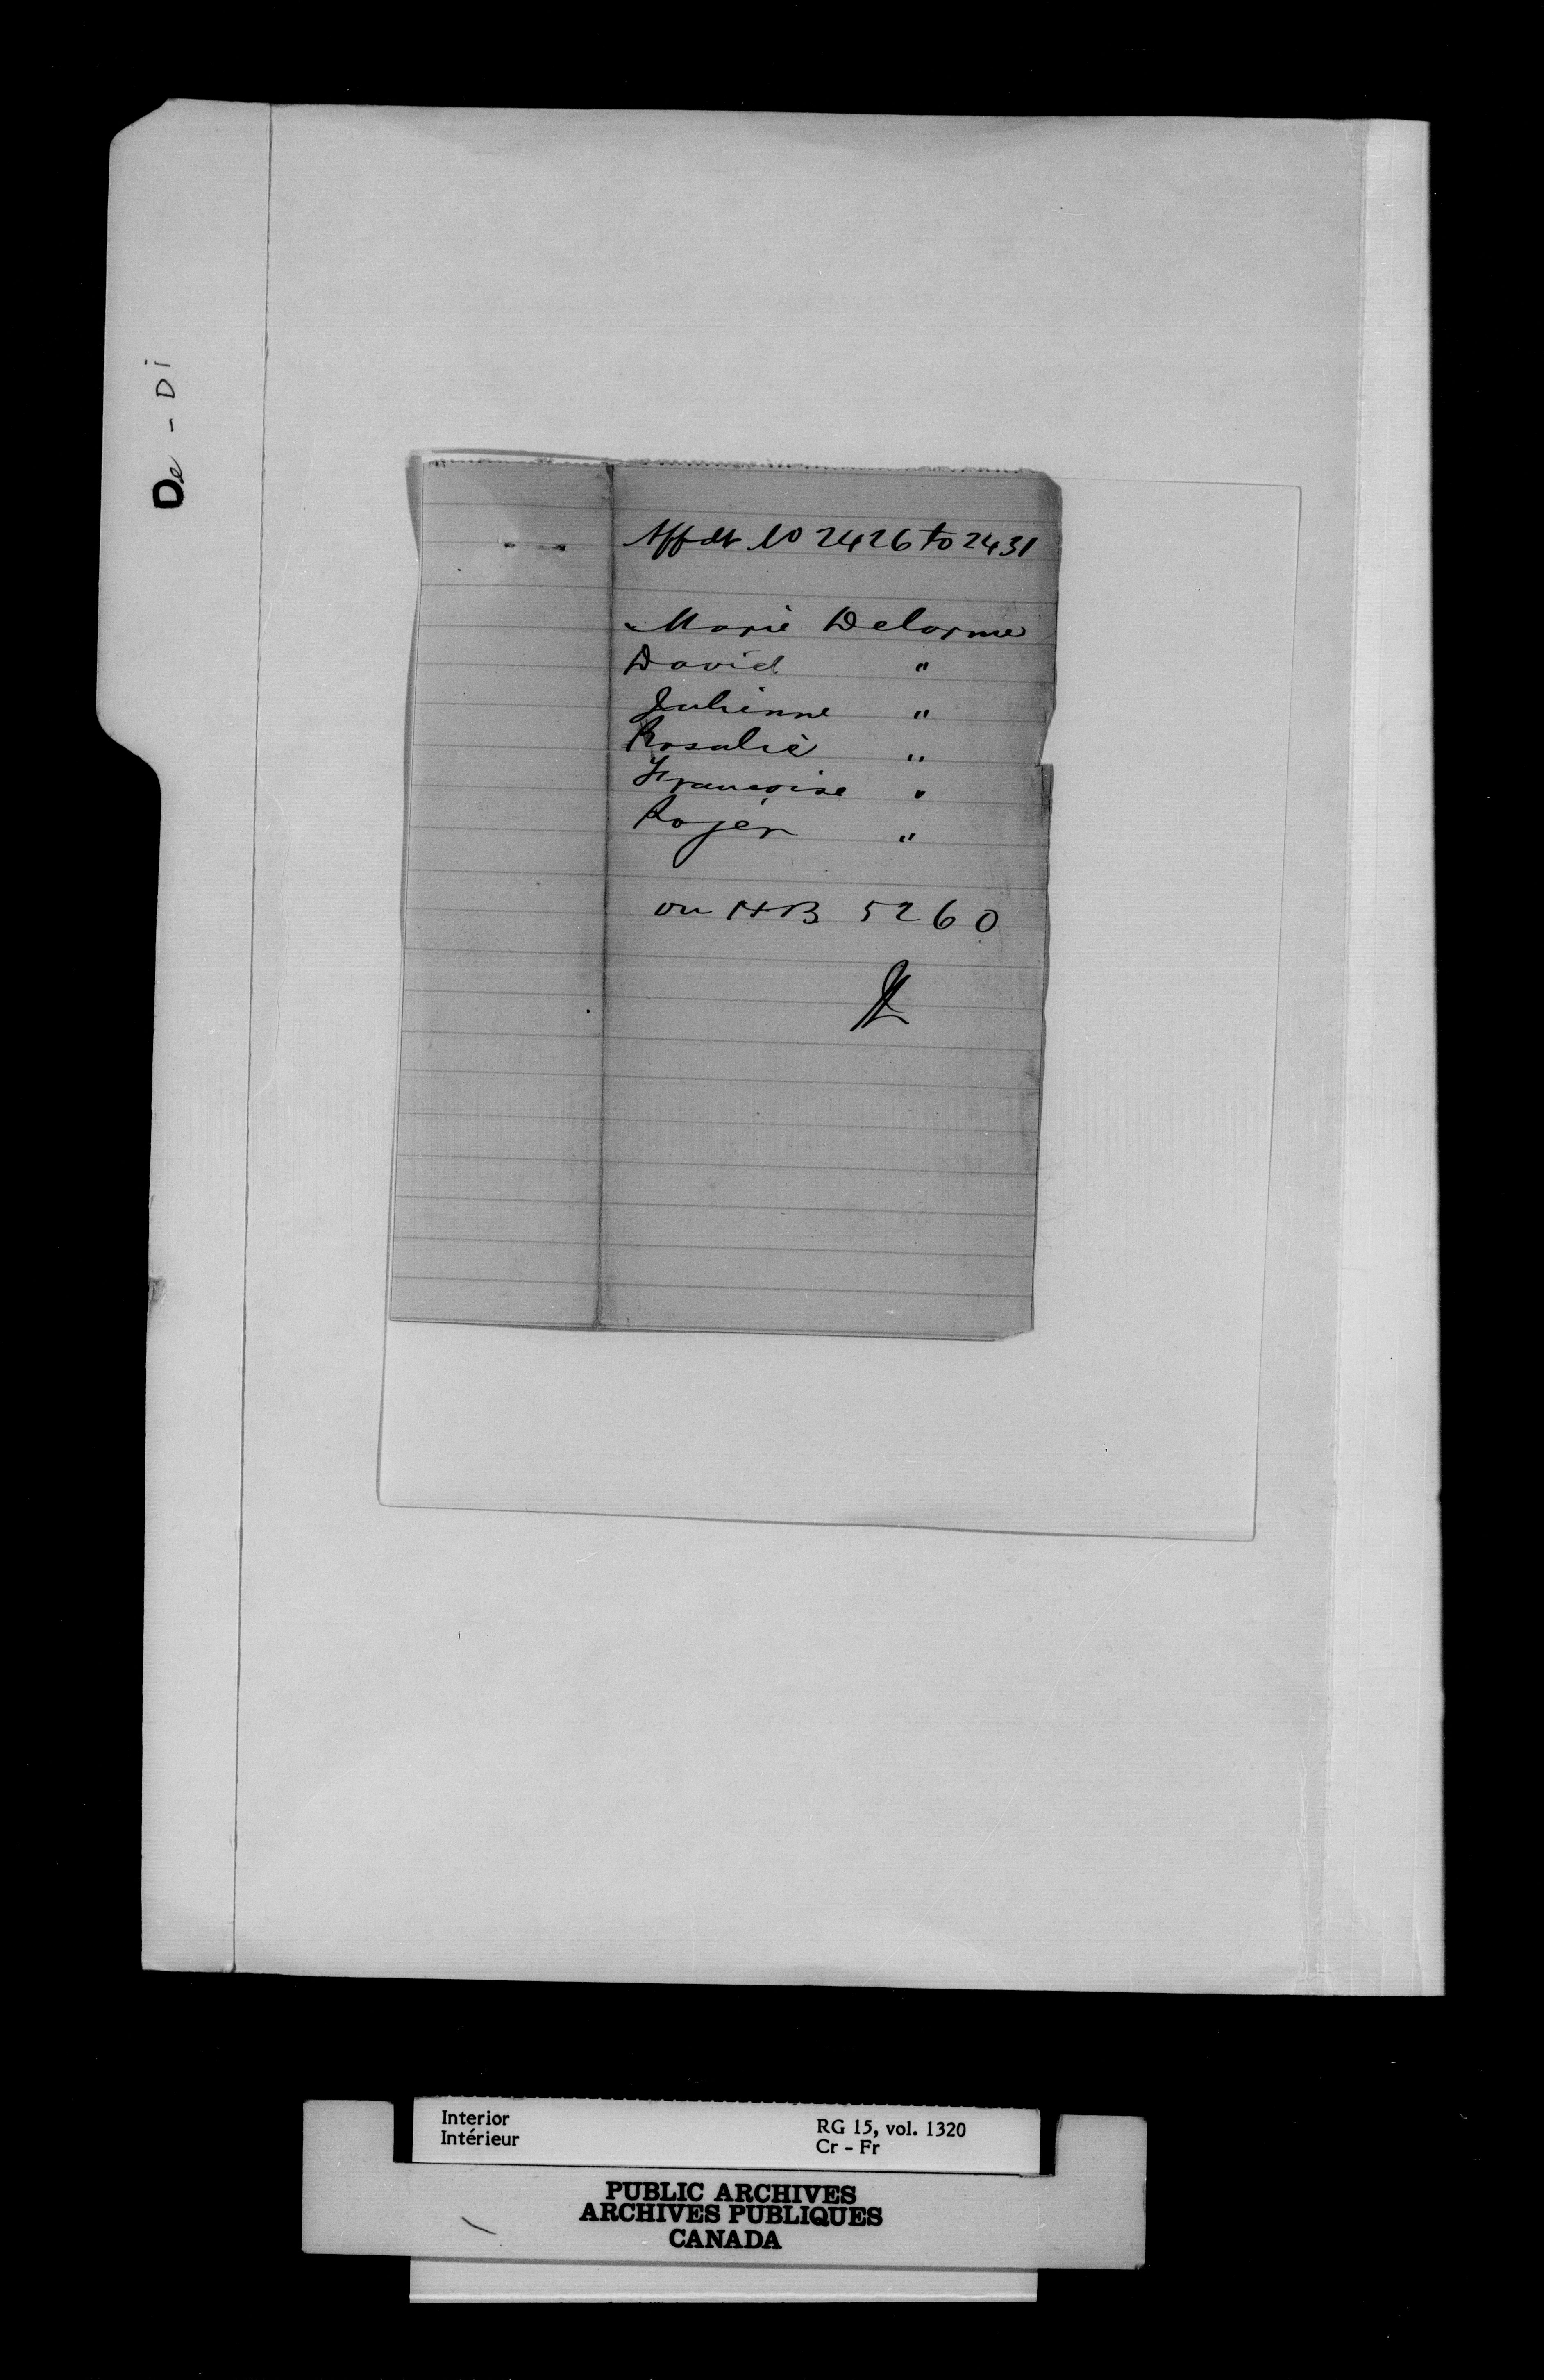 De - Di
Affdt No 2426 to 2431
Marie Delorme
David "
Julienne "
Rosalie "
Francoise "
Rojer "
on HB 5260
Interior
Intérieur
RG 15, vol. 1320
Cr - Fr
PUBLIC ARCHIVES
ARCHIVES PUBLIQUES
CANADA